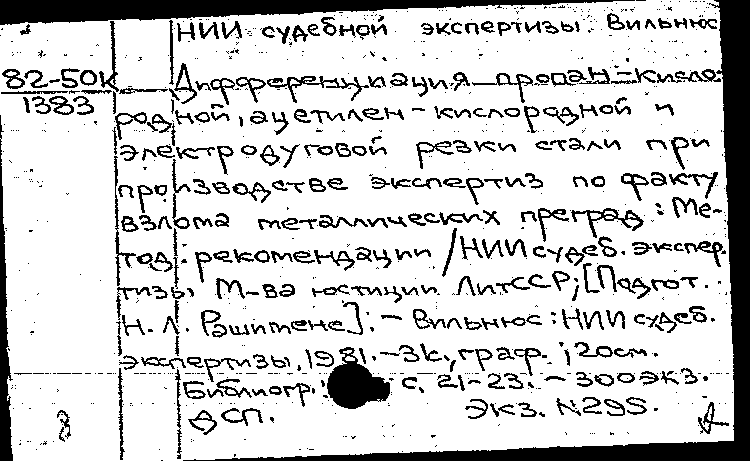 НИИ судебной экспертизы. Вильнюс
82-50к
1383
Дифференциация пропан-кисло-
родной, ацетилен-кислородной и
электродуговой резки стали при
производстве экспертиз по факту
взлома металлических преград: Ме-
тод. рекомендации / НИИ судеб. экспер-
тизы М-ва юстиции ЛитССР; [Подгот.
Н. Л. Рашитене]. - Вильнюс: НИИ судеб.
экспертизы, 1981. - 3к., граф.; 20см.
Библиогр.: с. 21-23. - 300 экз.
ДСП. Экз. N295.
8